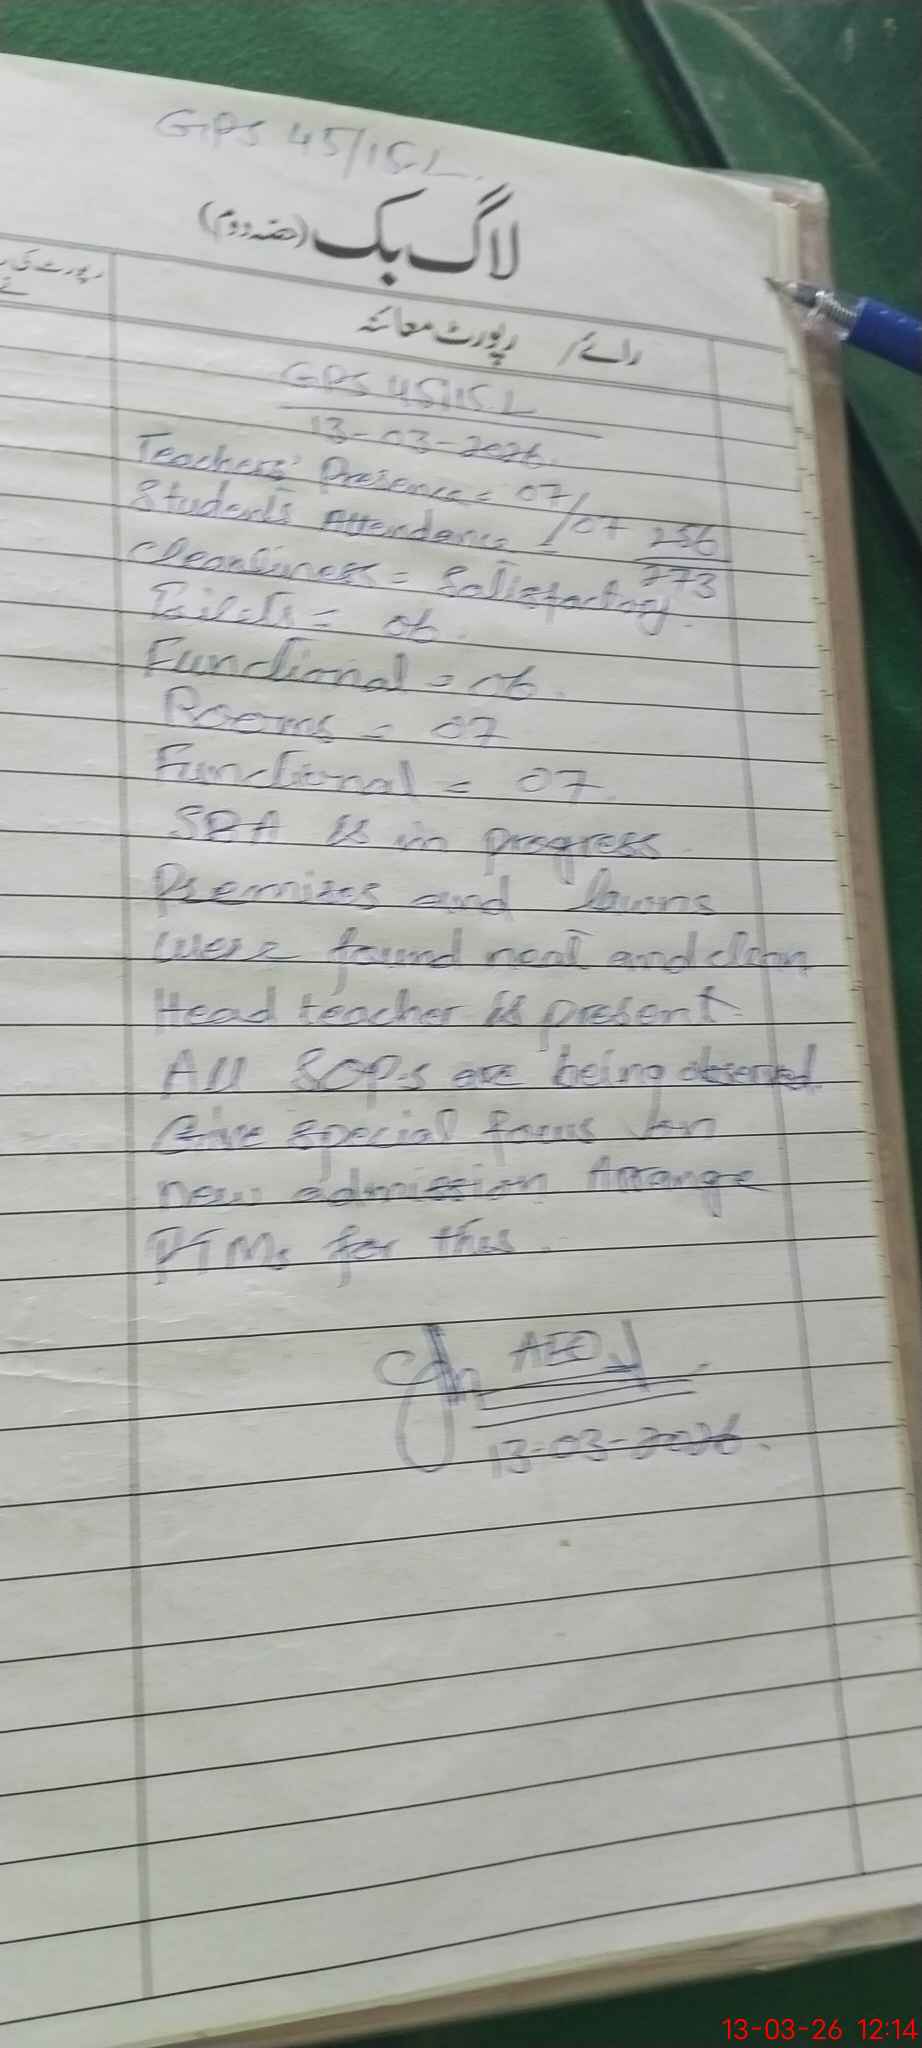 GPS 45/15.L
لاگ بک (حصہ دوم)
رائے / رپورٹ معائنہ
رپورٹ کی
GPS 45/15.L
13-03-2026
Teachers' Presence = 07/07
Students Attendance = 256/273
Cleanliness = Satisfactory.
Toilets = 06.
Functional = 06.
Rooms = 07
Functional = 07.
SBA is in progress.
Premises and lawns
were found neat and clean
Head teacher is present.
All SOPs are being observed.
Give special focus on
new admission Arrange
PTMs for this.
AEO
13-03-2026.
13-03-26 12:14